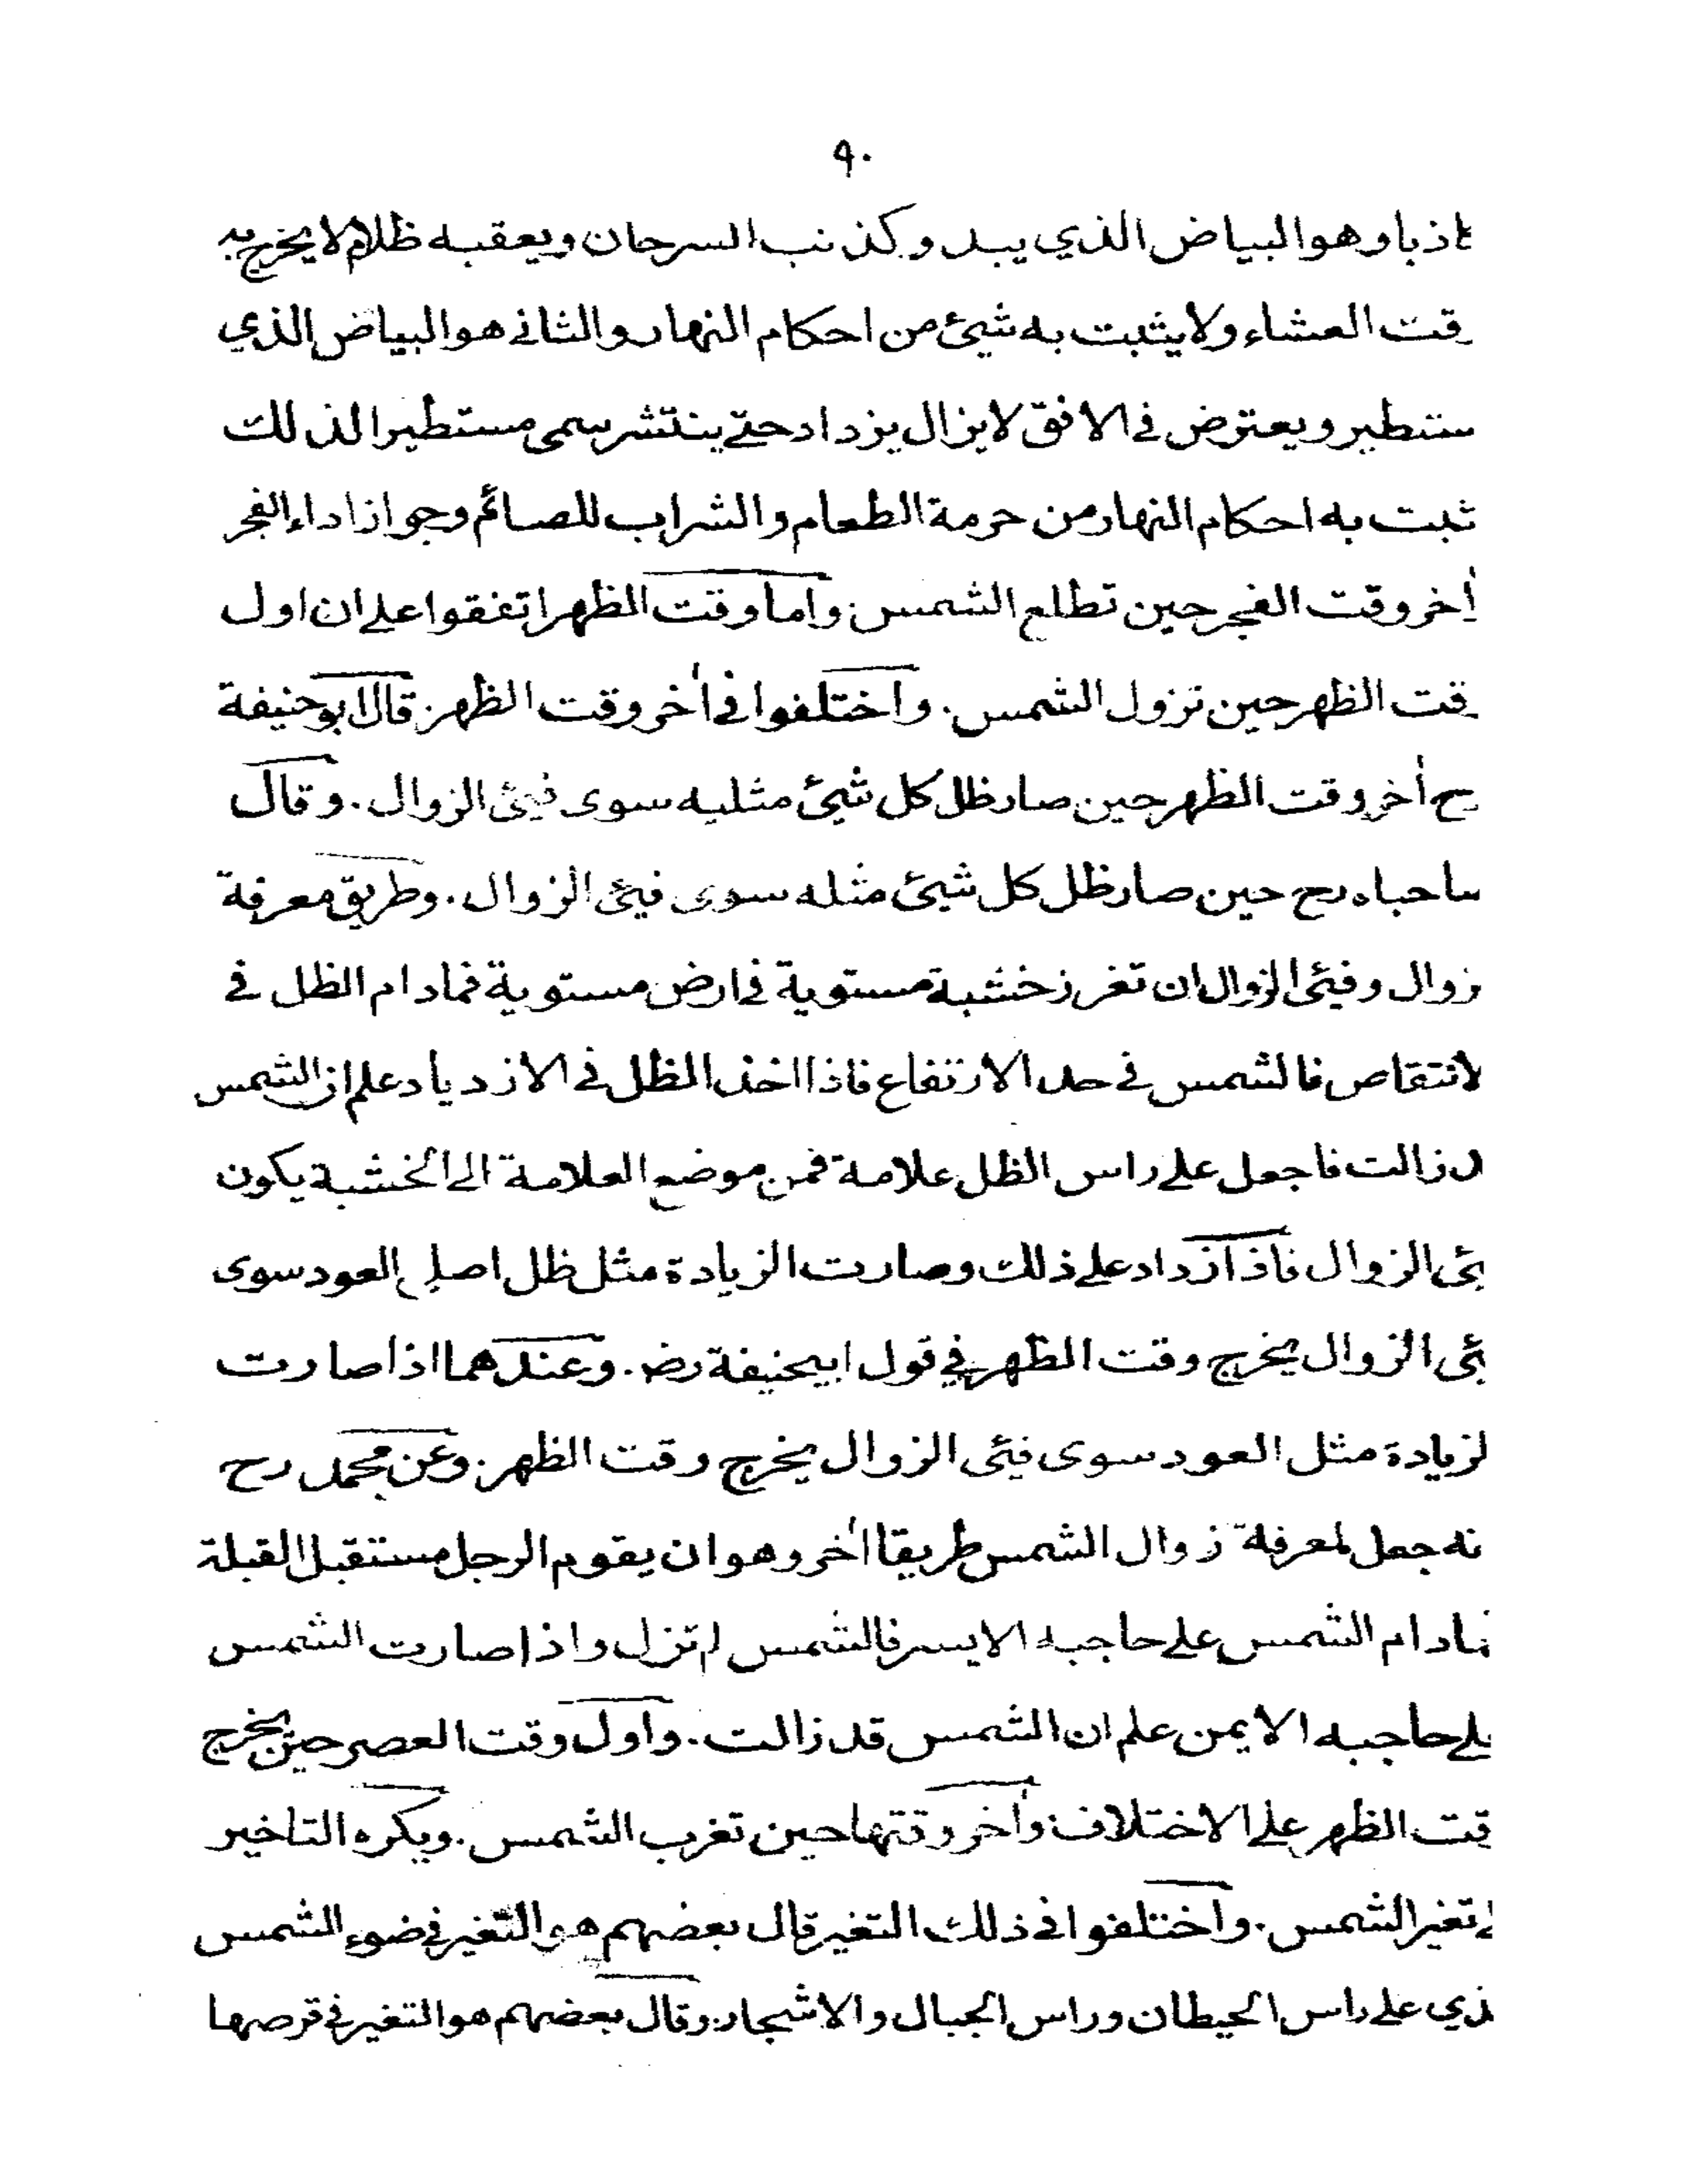 ٩٠
كاذبا وهو البياض الذي يبدو كذنب السرحان ويعقبه ظلام لا يخرج به
قت العشاء ولا يثبت به شيئ من احكام النهار والثاني هو البياض الذي
ستطير ويعترض في الافق لا يزال يزداد حتى ينتشر سمى مستطيرا لذلك
ثبت به احكام النهار من حرمة الطعام والشراب للصائم وجواز اداء الفجر
أخر وقت الفجر حين تطلع الشمس. واما وقت الظهر اتفقوا على ان اول
قت الظهر حين تزول الشمس. واختلفوا في أخر وقت الظهر. قال ابو حنيفة
رح أخر وقت الظهر حين صار ظل كل شيئ مثليه سوى فيئ الزوال. وقال
صاحباه رح حين صار ظل كل شيئ مثله سوى فيئ الزوال. وطريق معرفة
زوال وفيئ الزوال ان تغرز خشبة مستوية في ارض مستوية فمادام الظل في
لانتقاص فالشمس في حد الارتفاع فاذا اخذ الظل في الازدياد علم ان الشمس
د زالت فاجعل على راس الظل علامة فمن موضع العلامة الى الخشبة يكون
يئ الزوال فاذا ازداد على ذلك وصارت الزيادة مثل ظل اصل العود سوى
يئ الزوال يخرج وقت الظهر في قول ابيحنيفة رض. وعندهما اذا صارت
لزيادة مثل العود سوى فيئ الزوال يخرج وقت الظهر. وعن محمد رح
نه جعل لمعرفة زوال الشمس طريقا أخر وهو ان يقوم الرجل مستقبل القبلة
مادام الشمس على حاجبه الايسر فالشمس لم تزل واذا صارت الشمس
على حاجبه الايمن علم ان الشمس قد زالت. واول وقت العصر حين يخرج
قت الظهر على الاختلاف وأخر وقتها حين تغرب الشمس. ويكره التاخير
لى تغير الشمس. واختلفوا في ذلك التغير قال بعضهم هو التغير في ضوء الشمس
لذي على راس الحيطان وراس الجبال والاشجار. وقال بعضهم هو التغير في قرصها